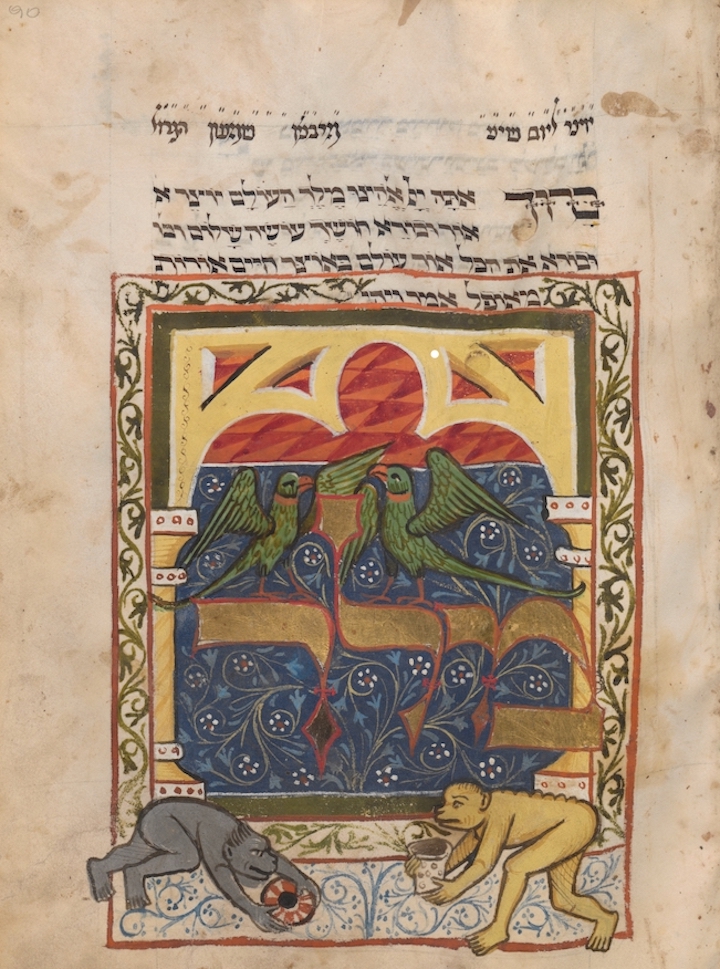 90
יוצר ליום שיני שמעון הגדול
ברוך אתה יי אלהינו מלך העולם יוצר א
אור ובורא חושך עושה שלום ובו
ובורא את הכל אור עולם באוצר חיים אורות
מאופל אמר ויהי
מלך